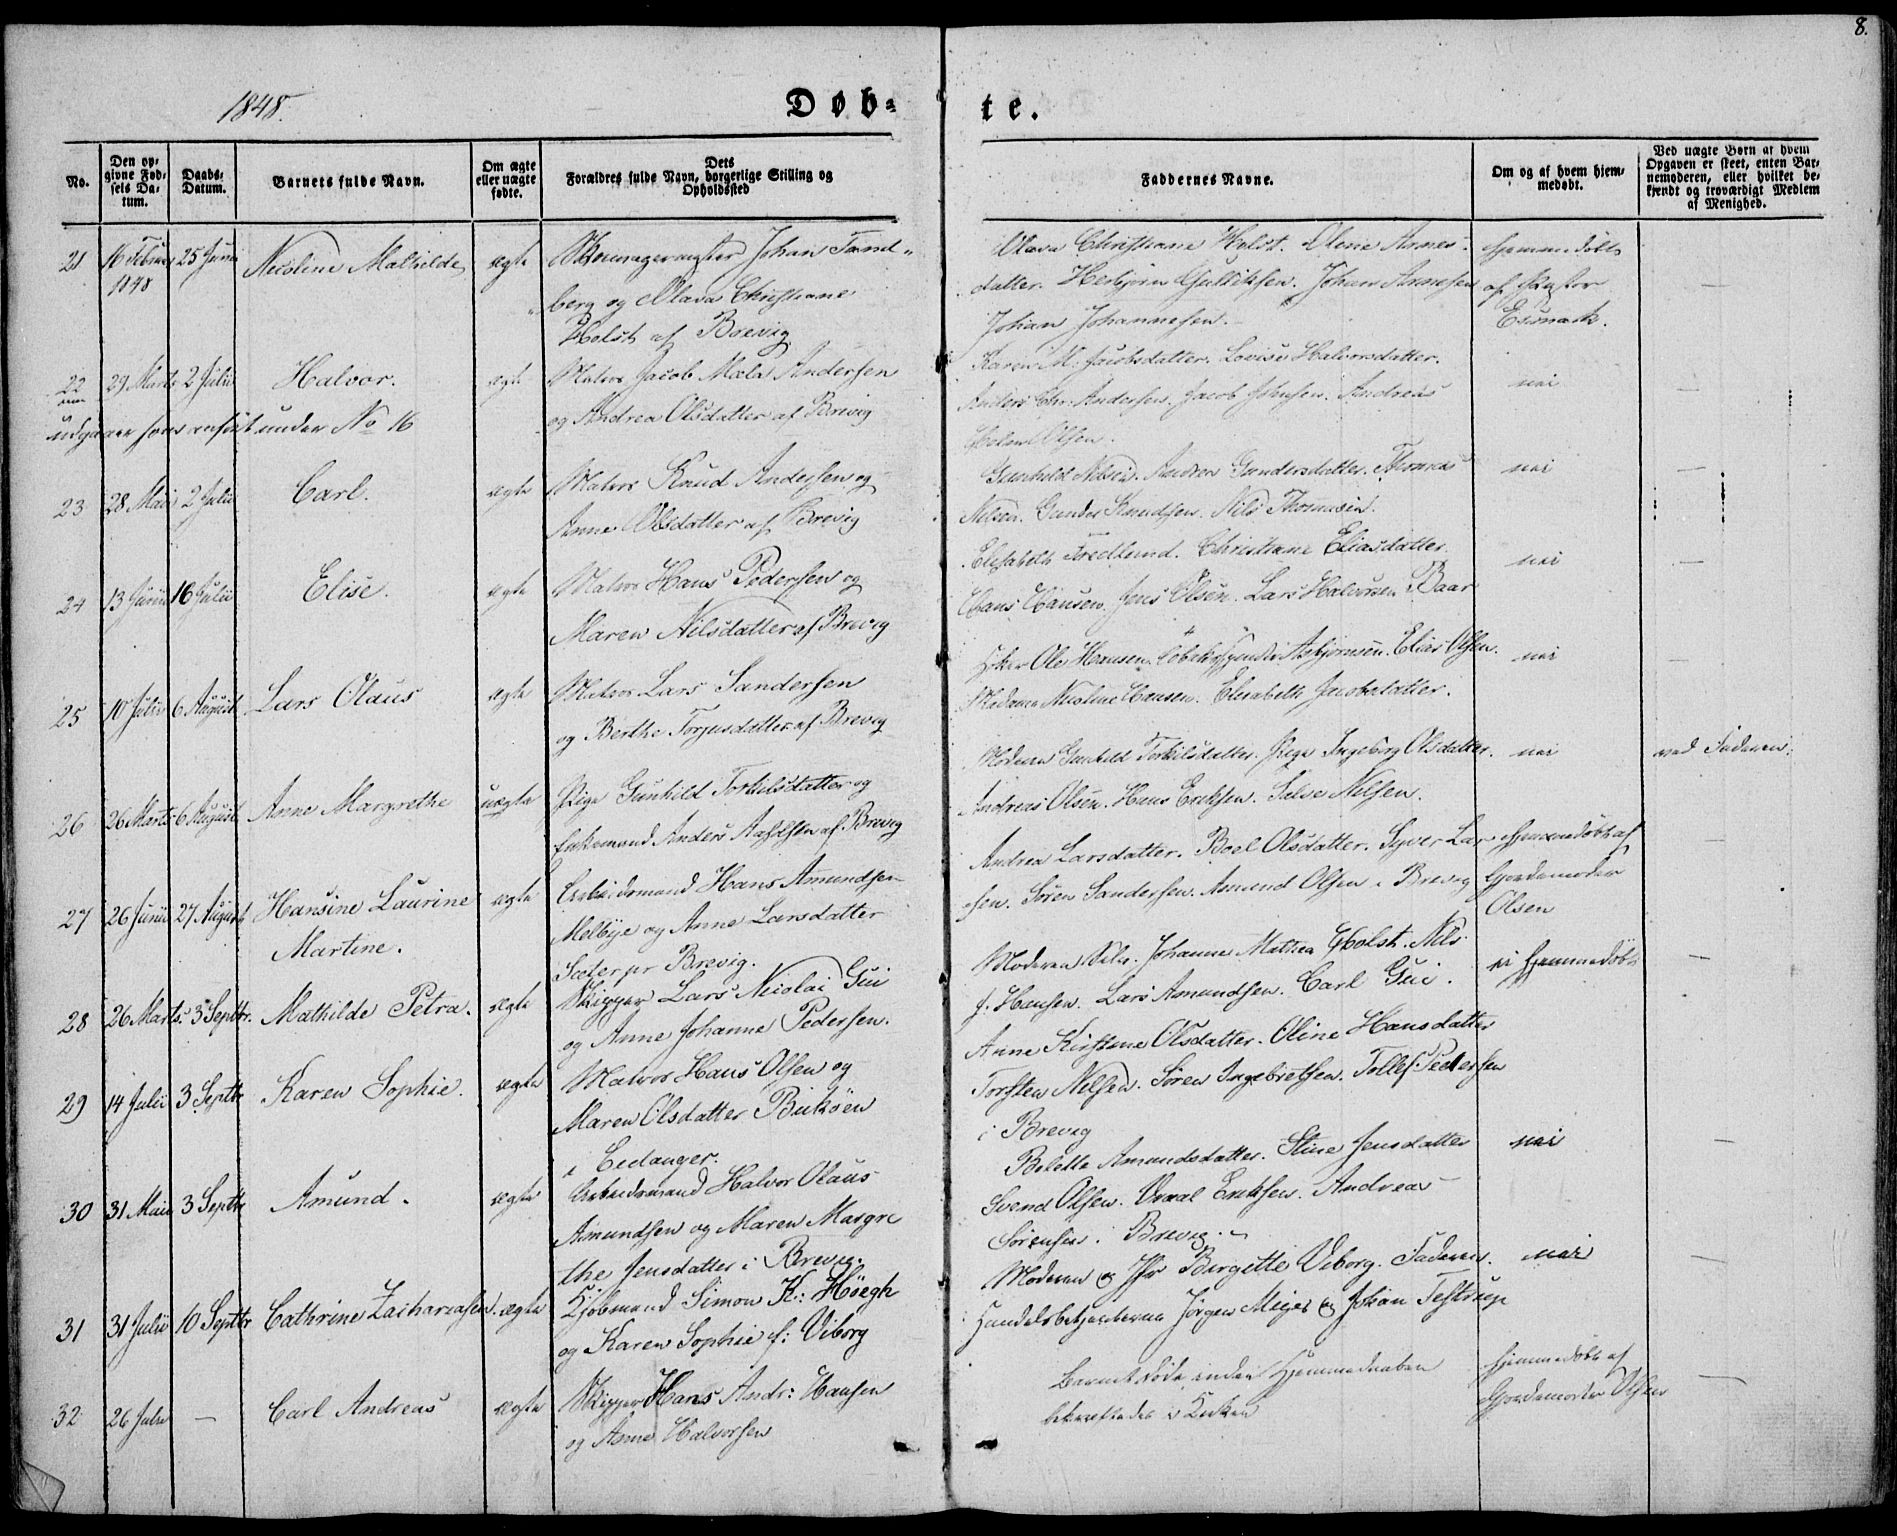 8.
1848.
Døb=
te.
No.
Den op-
givne Fød-
sels Da-
tum.
Daabs-
Datum.
Barnets fulde Navn.
Om ægte
eller uægte
fødte.
Dets
Forældres fulde Navn, borgerlige Stilling og
Opholdssted
Faddernes Navne.
Om og af hvem hjem-
medøbt.
Ved uægte Børn af hvem
Opgaven er skeet, enten Bar-
nemoderen, eller hvilket be-
kjendt og troværdigt Medlem
af Menighed.
21 16 Februar 1848 25 Juni Nicoline Mathilde ægte
Skomagermester Johan Tand-
berg og Olava Christiane
Holst af Brevig
Olava Christiane Holst. Olene Arnes-
datter. Herbjørn Gulliksen. Johan Arnesen
Johan Johannesen.
Hjemmedøbt
af Pastor
Esmark.
22 29 Marts 2 Julii Halvor. ægte
Matros Jacob Mæla Andersen
og Andrea Olsdatter af Brevig
Karen M. Jacobsdatter. Lovise Halvorsdatter.
Anders Chr. Andersen. Jacob Johnsen. Andreas
Olsen.
nei
udgaaer som anført under No 16
23 28 Mai 2 Julii Carl. ægte
Matros Knud Andersen og
Anne Olsdatter af Brevig
Gunhild Nilsen. Andrea Gundersdatter. Thomas
Nilsen. Gunder Knudsen. Nils Thomasen.
nei
24 13 Junii 16 Julii Elise. ægte
Matros Hans Pedersen og
Maren Nilsdatter af Brevig
Elisabeth Fredlund. Christiane Eliasdatter.
Hans Hansen. Jens Olsen. Lars Halvorsen Baar
nei
25 10 Julii 6 August Lars Olaus ægte
Matros Lars Sandersen
og Berthe Torjusdatter af Brevig
Ole Hansen. Asbjørnsen. Elias Olsen.
Madame Nicoline Hansen. Elisabeth Jacobsdatter.
nei
26 26 Marts 6 August Anne Margrethe uægte
Pige Gunhild Torkilsdatter og
Enkemand Anders Aslesen af Brevig
Moderen Gunhild Torkilsdatter. Pige Ingeborg Olsdatter.
Andreas Olsen. Hans Eriksen. Salve Nilsen.
nei
ved Faderen.
27 26 Junii 27 August Hansine Laurine
Martine. ægte
Arbeidsmand Hans Amundsen
Melbye og Anne Larsdatter
Sæter pr Brevig.
Andrea Larsdatter. Boel Olsdatter. Syver Lar-
sen. Søren Sandersen. Amund Olsen i Brevig
Hjemmedøbt af
Gjordemoder
Olsen
28 26 Marts. 3 Septbr. Mathilde Petra. ægte
Skipper Lars Nicolai Gui
og Anne Johanne Pedersen.
Moderen selv. Johanne Mathea Holst. Nils
f. Hansen. Lars Amundsen. Carl Gui.
ei hjemmedøbt
29 14 Julii 3 Septbr Karen Sophie. ægte
Matros Hans Olsen og
Maren Olsdatter Bukøen
i Eidanger.
Anne Kirstine Olsdatter. Oline Hansdatter
Torsten Nilsen. Søren Ingebretsen. Tollef Pedersen
i Brevig
30 31 Mai 3 Septbr Amund. ægte
Arbeidsmand Halvor Olaus
Amundsen og Maren Margre
the Jensdatter i Brevig.
Bolette Amundsdatter. Stine Jensdatter
Svend Olsen. Vraal Eriksen. Andreas
Sørensen i Brevig.
nei
31 31 Julii 10 Septbr Cathrine Zachariasen. ægte
Kjøbmand Simon K: Høegh
og Karen Sophie f: Viborg
Moderen og Jfr Birgitte Viborg. Faderen.
Handelsbetjenterne Jørgen Meyer og Johan Testrup
nei
32 26 Julii — Carl Andreas ægte
Skipper Hans Andr: Hansen
og Anne Halvorsen
Barnet døde inden Hjemmedaaben
bekræftedes i Kirken
Hjemmedøbt af
Gjordemoder Olsen